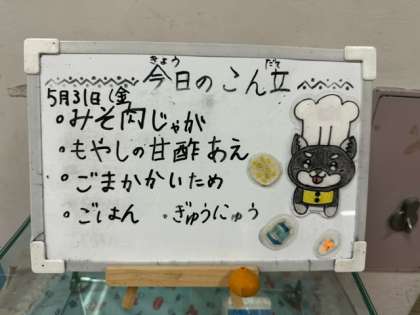 今日のこん立
5月31日(金)
・みそ肉じゃが
・もやしの甘酢あえ
・ごまかかいため
・ごはん ・ぎゅうにゅう